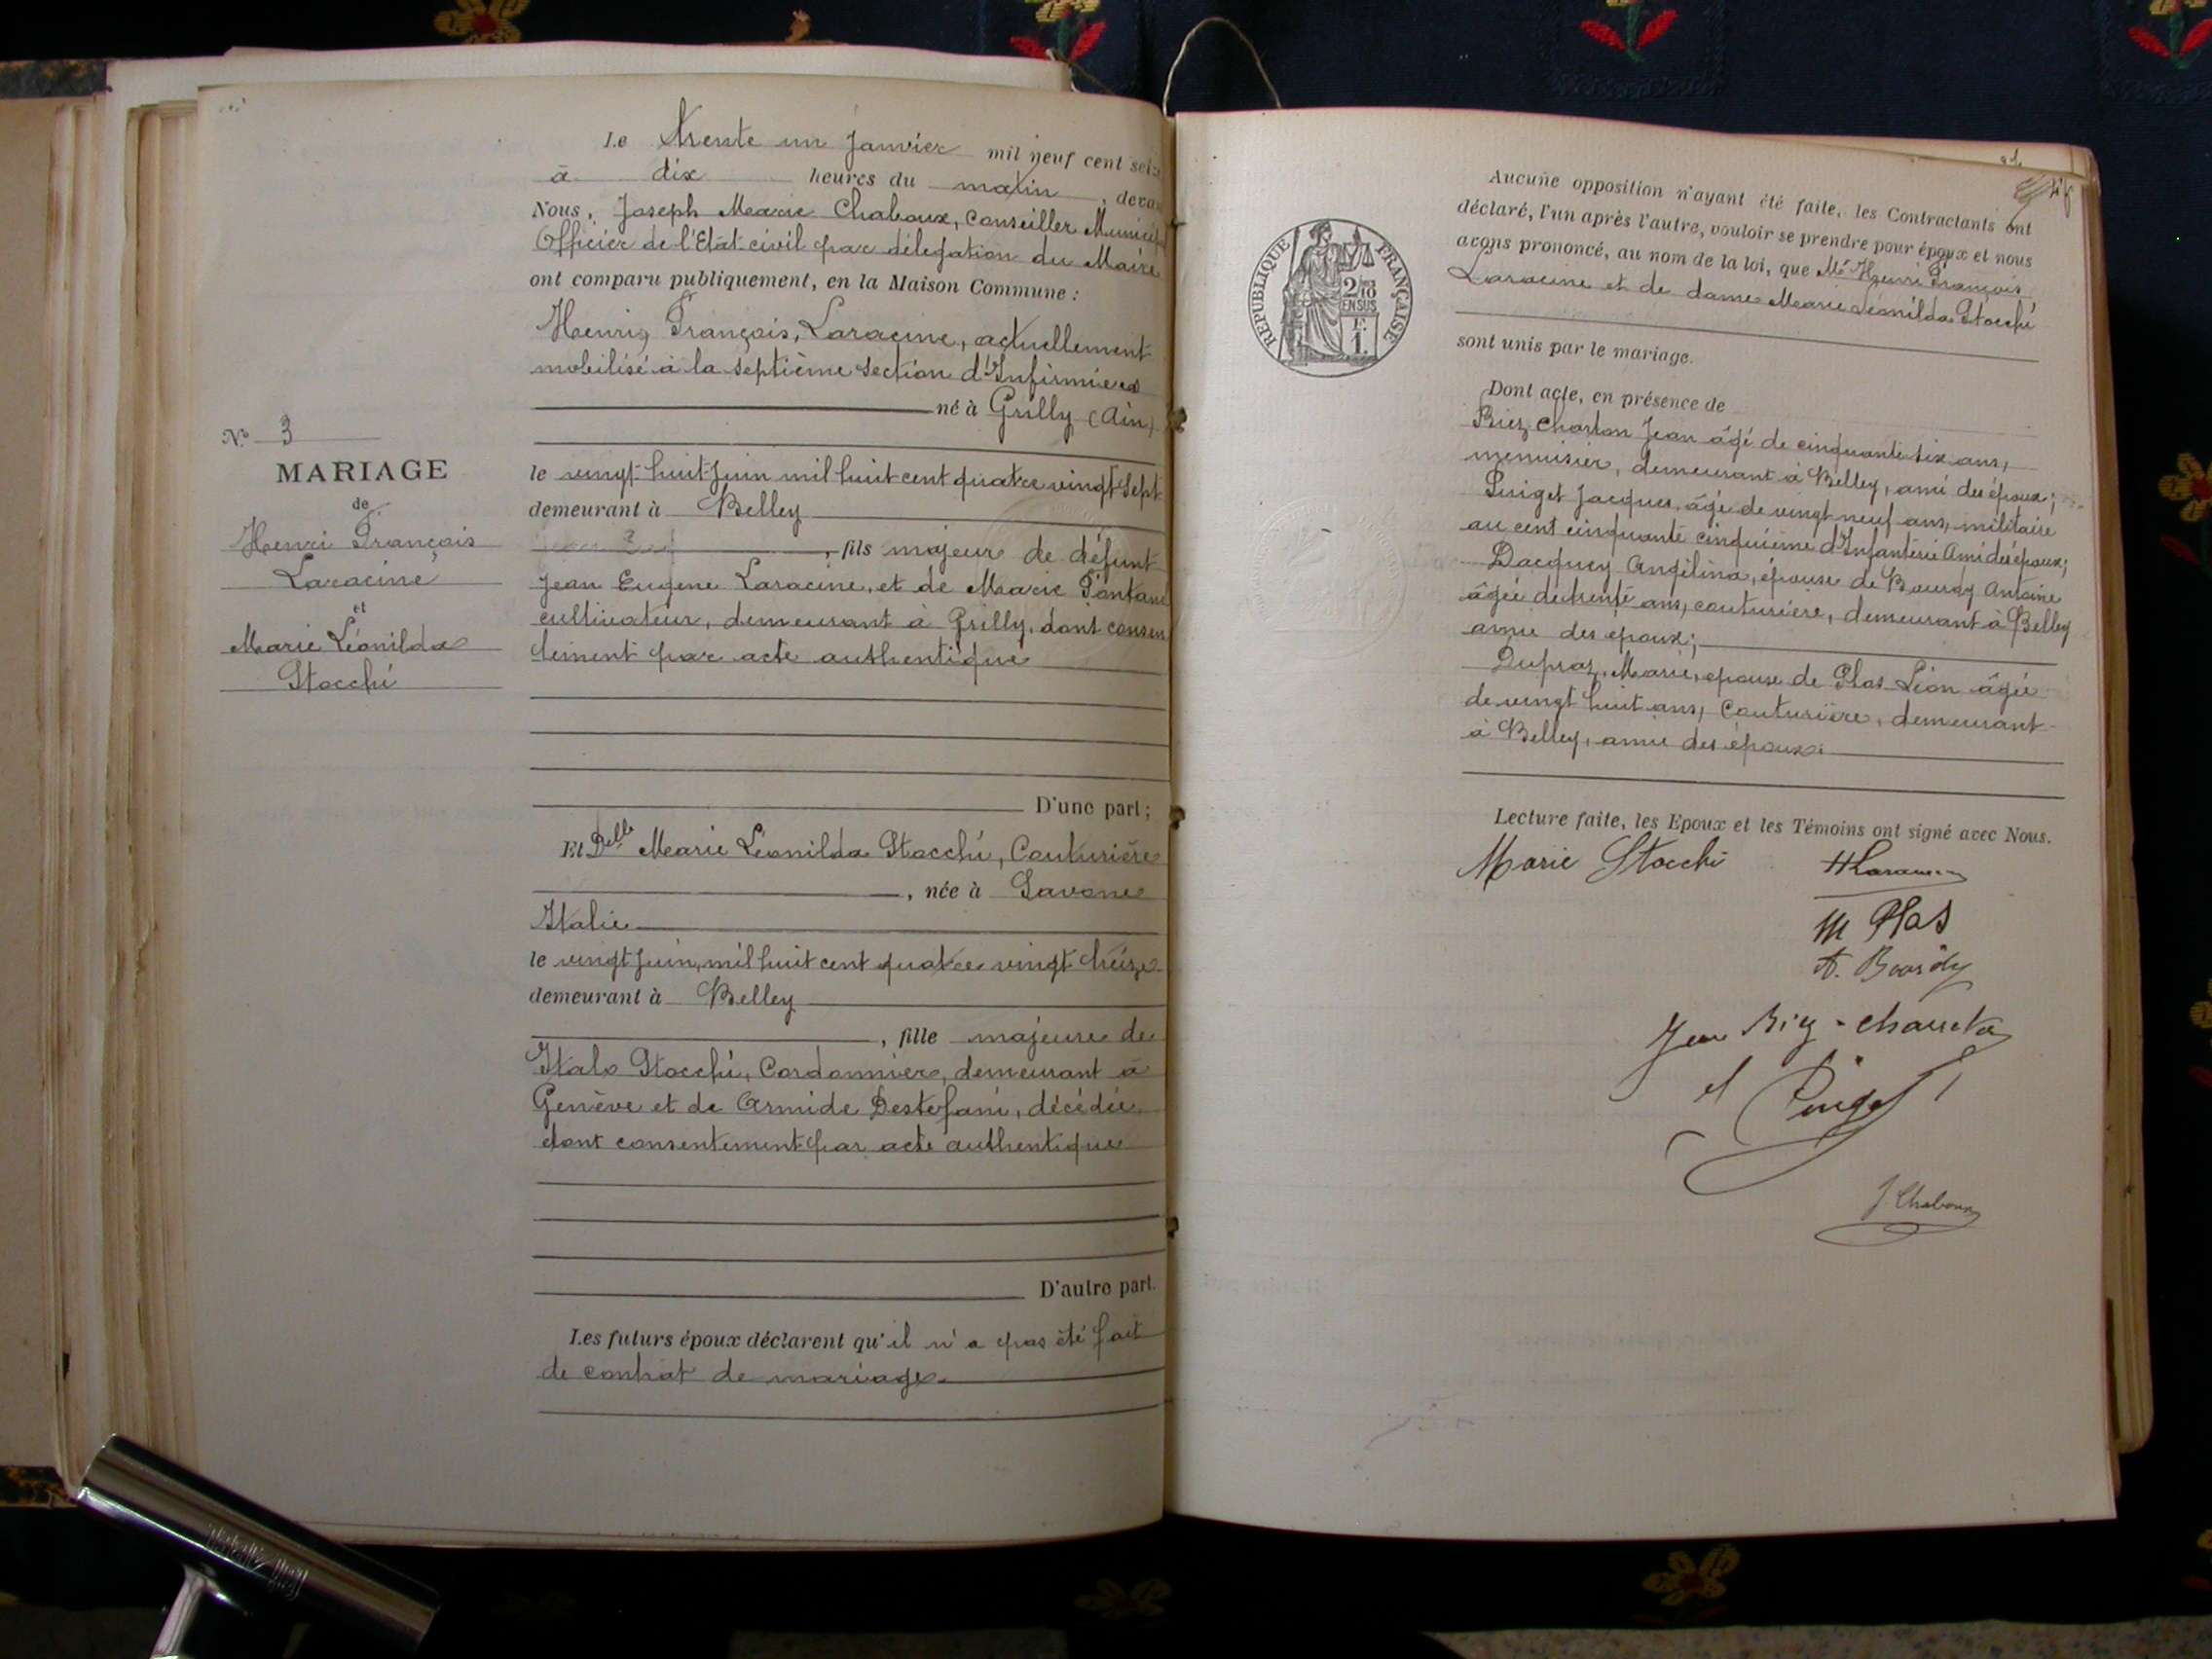 Le trente un janvier mil neuf cent seize
à dix heures du matin, devant
Nous, Joseph Marie Chaboux, Conseiller Municipal
Officier de l'Etat civil par délégation du Maire
ont comparu publiquement, en la Maison Commune :
Henri, François, Laracine, actuellement
mobilisé à la septième section d'Infirmiers
né à Grilly (Ain)
le vingt huit Juin mil huit cent quatre vingt sept
demeurant à Belley
, fils majeur de défunt
Jean Eugene Laracine, et de Marie Fontane
cultivateur, demeurant à Grilly, dont consen
tement par acte authentique
D'une part ;
Et Delle Marie Léonilda Stocchi, Couturière
, née à Savone
Italie
le vingt Juin, mil huit cent quatre vingt treize
demeurant à Belley
, fille majeure de
Italo Stocchi, Cordonnier, demeurant à
Genève et de Armide Destefani, décédée
dont consentement par acte authentique
D'autre part.
Les futurs époux déclarent qu'il n'a pas été fait
de contrat de mariage.
No 3
MARIAGE
de
Henri François
Laracine
et
Marie Léonilda
Stocchi
Aucune opposition n'ayant été faite, les Contractants ont
déclaré, l'un après l'autre, vouloir se prendre pour époux et nous
avons prononcé, au nom de la loi, que Mr Henri François
Laracine et de dame Marie Léonilda Stocchi
sont unis par le mariage.
Dont acte, en présence de
Riez Charton Jean âgé de cinquante six ans,
menuisier, demeurant à Belley, ami des époux ;
Puiget Jacques, âgé de vingt neuf ans, militaire
au cent cinquante cinquième d'Infanterie Ami des époux ;
Dacquey Angélina, épouse de Bourdy Antoine
âgée de trente ans, couturière, demeurant à Belley
amie des époux ;
Dupraz, Marie, épouse de Plas Léon âgée
de vingt huit ans, Couturière, demeurant
à Belley, amie des époux.
Lecture faite, les Epoux et les Témoins ont signé avec Nous.
Marie Stocchi
H Laracine
M Plas
A. Bourdy
J Chaboux
REPUBLIQUE FRANÇAISE
2/10
EN SUS
F.
1.